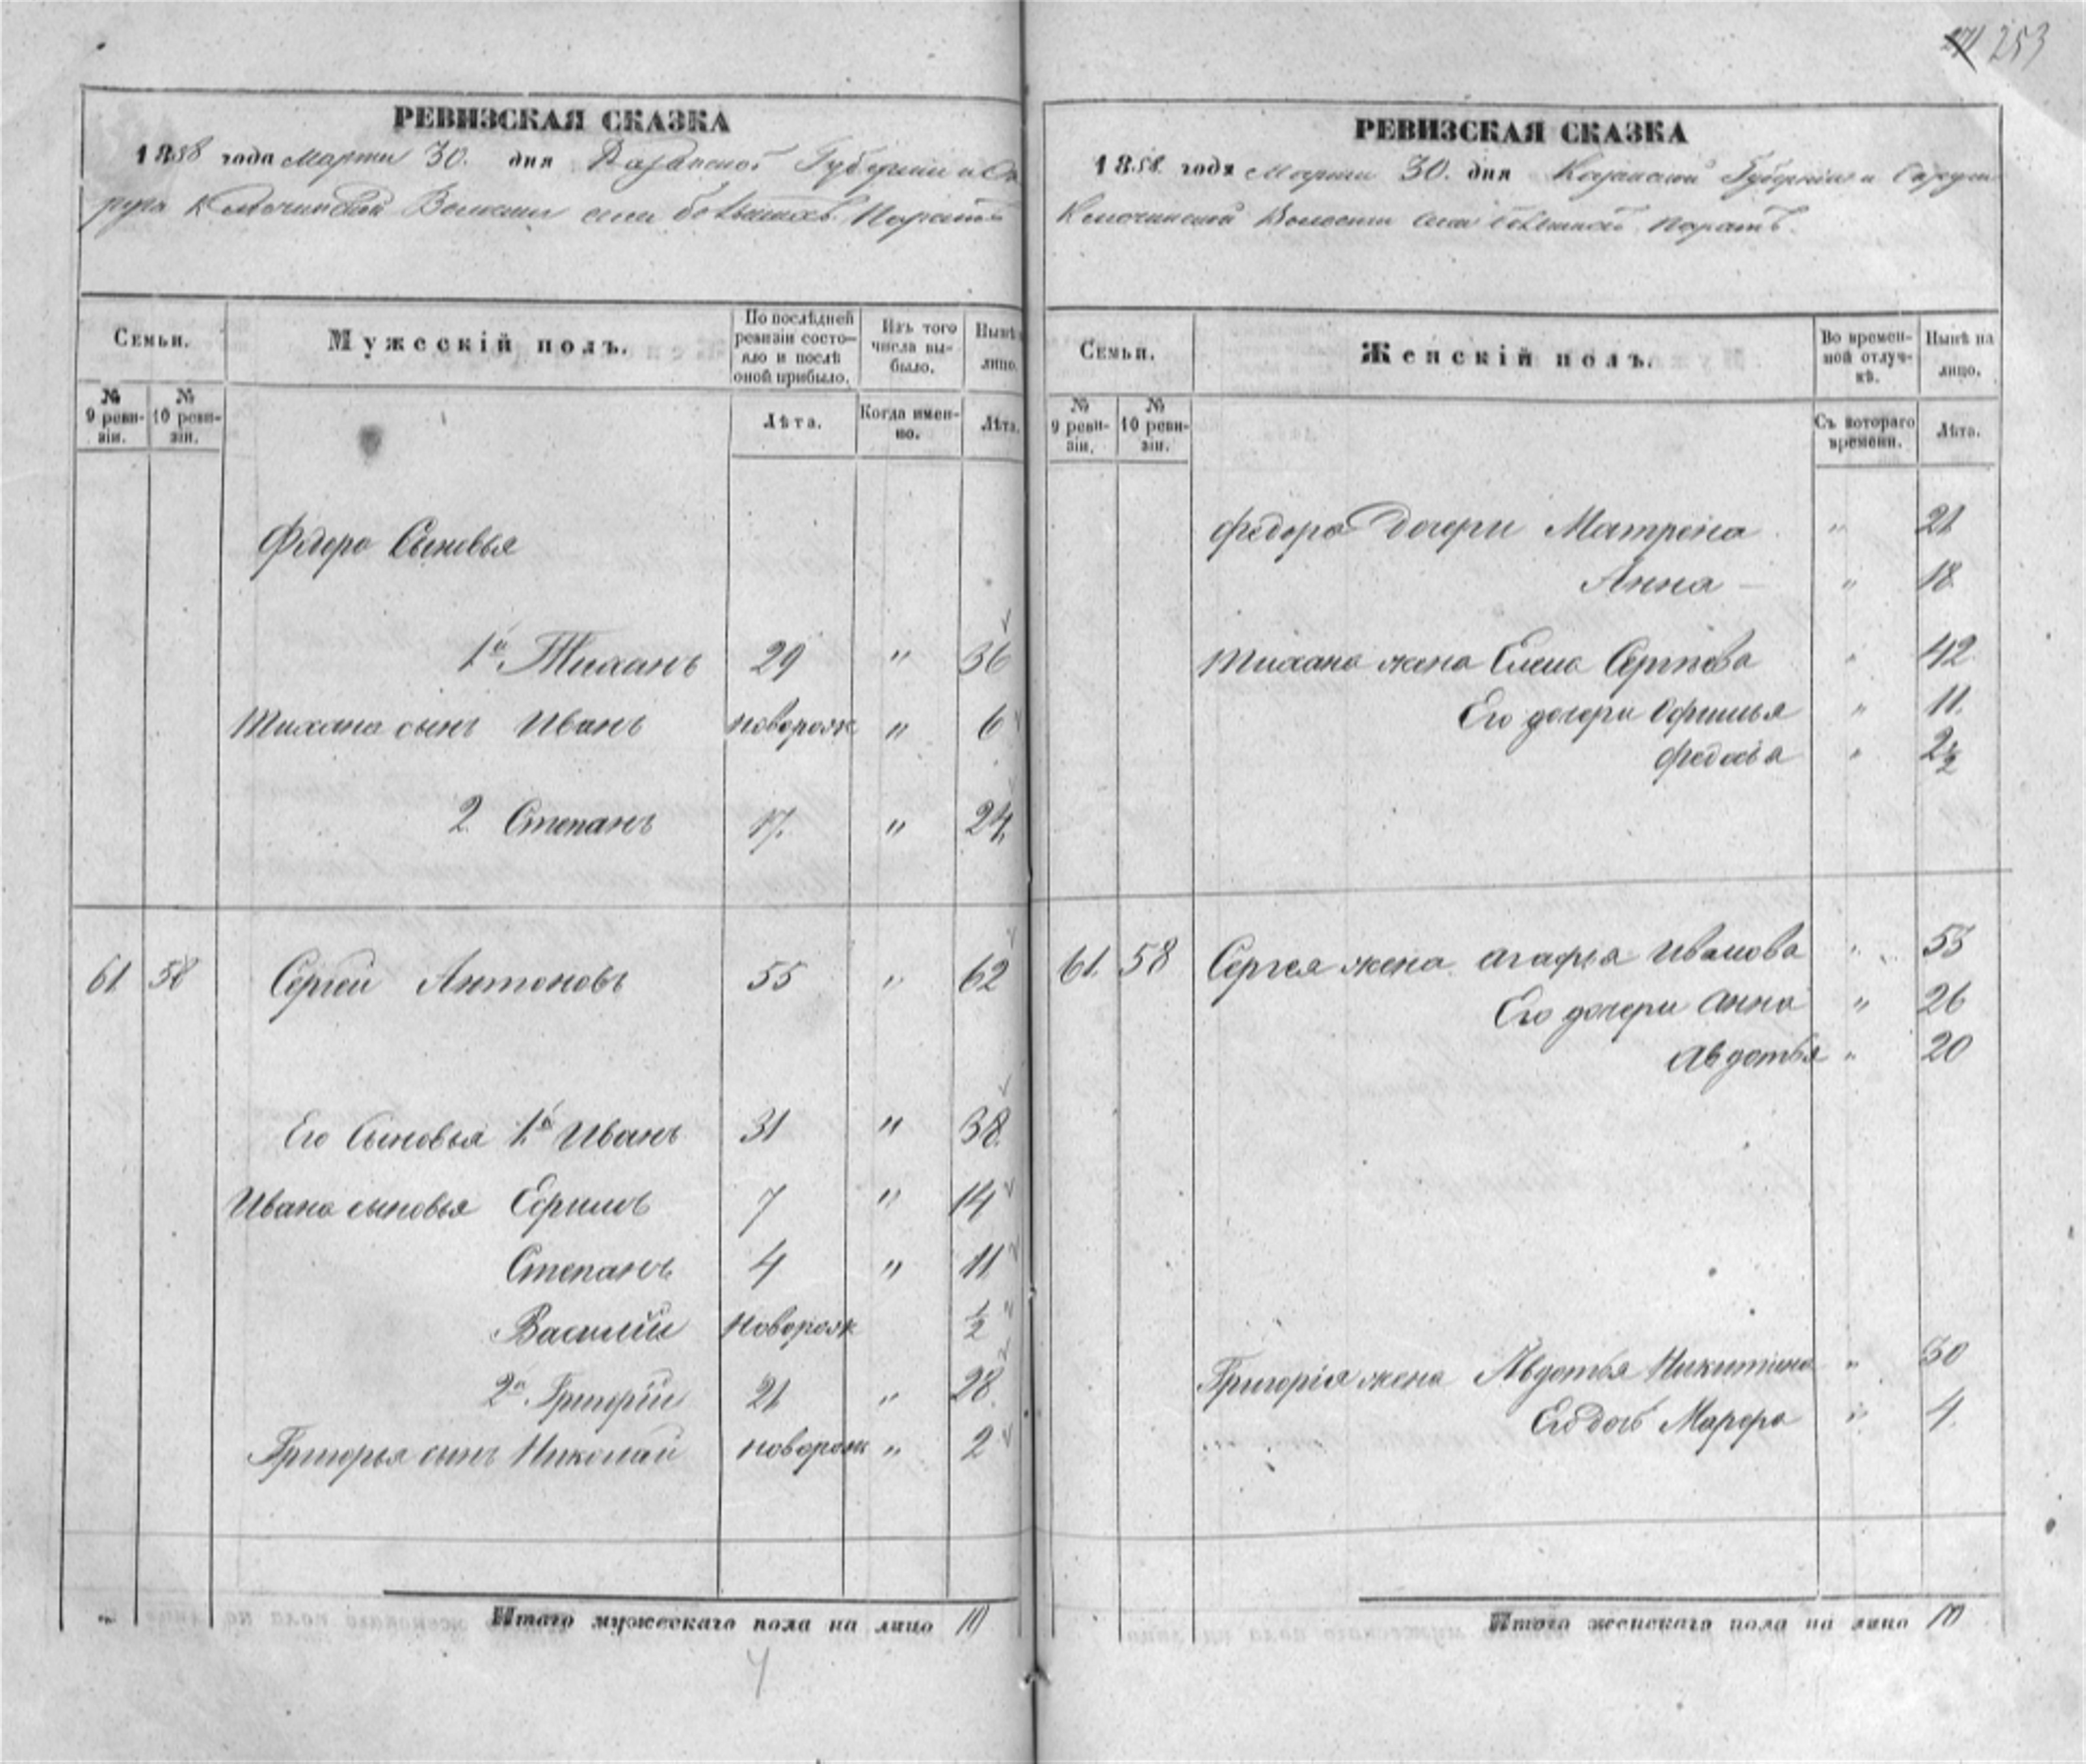 253
РЕВИЗСКАЯ СКАЗКА
1858 года Марта 30. дня Казанской Губернiи и Ок
руга Ключинской Волости села большихъ Паратъ
Семьи.
Мужескій полъ.
По послѣдней ревизіи состояло и послѣ оной прибыло.
Изъ того числа выбыло.
Нынѣ лицо.
№ 9 ревизіи.
№ 10 ревизіи.
Лѣта.
Когда именно.
Лѣта.
Федора Сыновья
1й Тиханъ 29 " 36
Тихана сынъ Иванъ новорож " 6
2 Степанъ 17. " 24.
61 58 Сергей Антоновъ 55 " 62
Его Сыновья 1й Иванъ 31 " 38.
Ивана сыновья Ефимъ 7 " 14
Степанъ 4 " 11
Василiй новорож ½
2й Григорiй 21 " 28.
Григорья сынъ Николай новорож " 2
Итого мужескаго пола на лицо 10
РЕВИЗСКАЯ СКАЗКА
1858. года Марта 30. дня Казанской Губернiи и Округи
Ключинской Волости села большихъ Паратъ.
Семьи.
Женскій полъ.
Во временной отлучкѣ.
Нынѣ на лицо.
№ 9 ревизіи.
№ 10 ревизіи.
Съ котораго времени.
Лѣта.
Федора Дочери Матрена " 21
Анна — " 18
Тихана жена Елена Сергѣева " 42
Его дочери Офимья " 11.
Федосья " 2½
61. 58 Сергея жена агафья Иванова " 55
Его дочери Анна " 26
Авдотья " 20
Григорiя жена Авдотья Никитина " 30
Его дочь Марфа " 4.
Итого женскаго пола на лицо 10